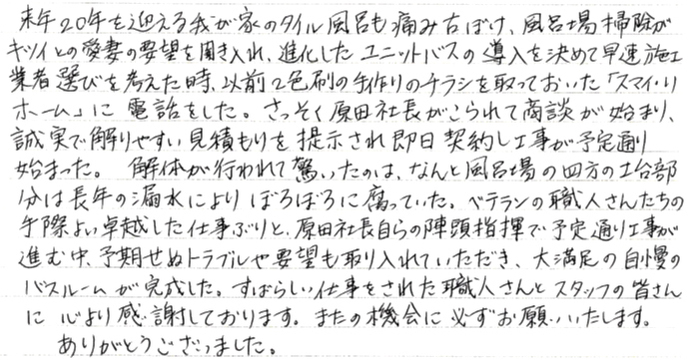 来年20年を迎える我が家のタイル風呂も痛み古ぼけ、風呂場掃除が
キツイとの愛妻の要望を聞き入れ、進化したユニットバスの導入を決めて早速施工
業者選びを考えた時、以前2色刷の手作りのチラシを取っておいた「スマイリ
ホーム」に電話をした。さっそく原田社長がこられて商談が始まり、
誠実で解りやすい見積もりを提示され即日契約し工事が予定通り
始まった。 解体が行われて驚いたのは、なんと風呂場の四方の土台部
分は長年の漏水によりぼろぼろに腐っていた。ベテランの職人さんたちの
手際よい卓越した仕事ぶりと、原田社長自らの陣頭指揮で予定通り工事が
進む中、予期せぬトラブルや要望も取り入れていただき、大満足の自慢の
バスルームが完成した。すばらしい仕事をされた職人さんとスタッフの皆さん
に心より感謝しております。またの機会に必ずお願いいたします。
ありがとうございました。